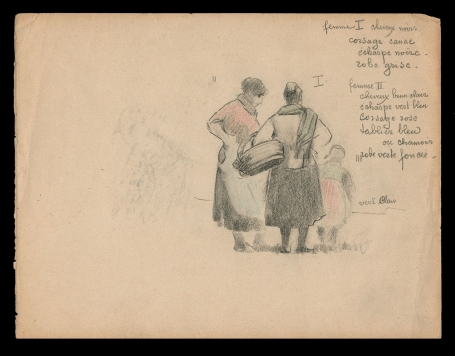 femme I cheveux noirs
corsage
écharpe noire.
robe grise.
femme II
cheveux brun
écharpe vert bleu
Corsage rose
tablier bleu
ou chamois
robe verte foncée.
II
I
vert